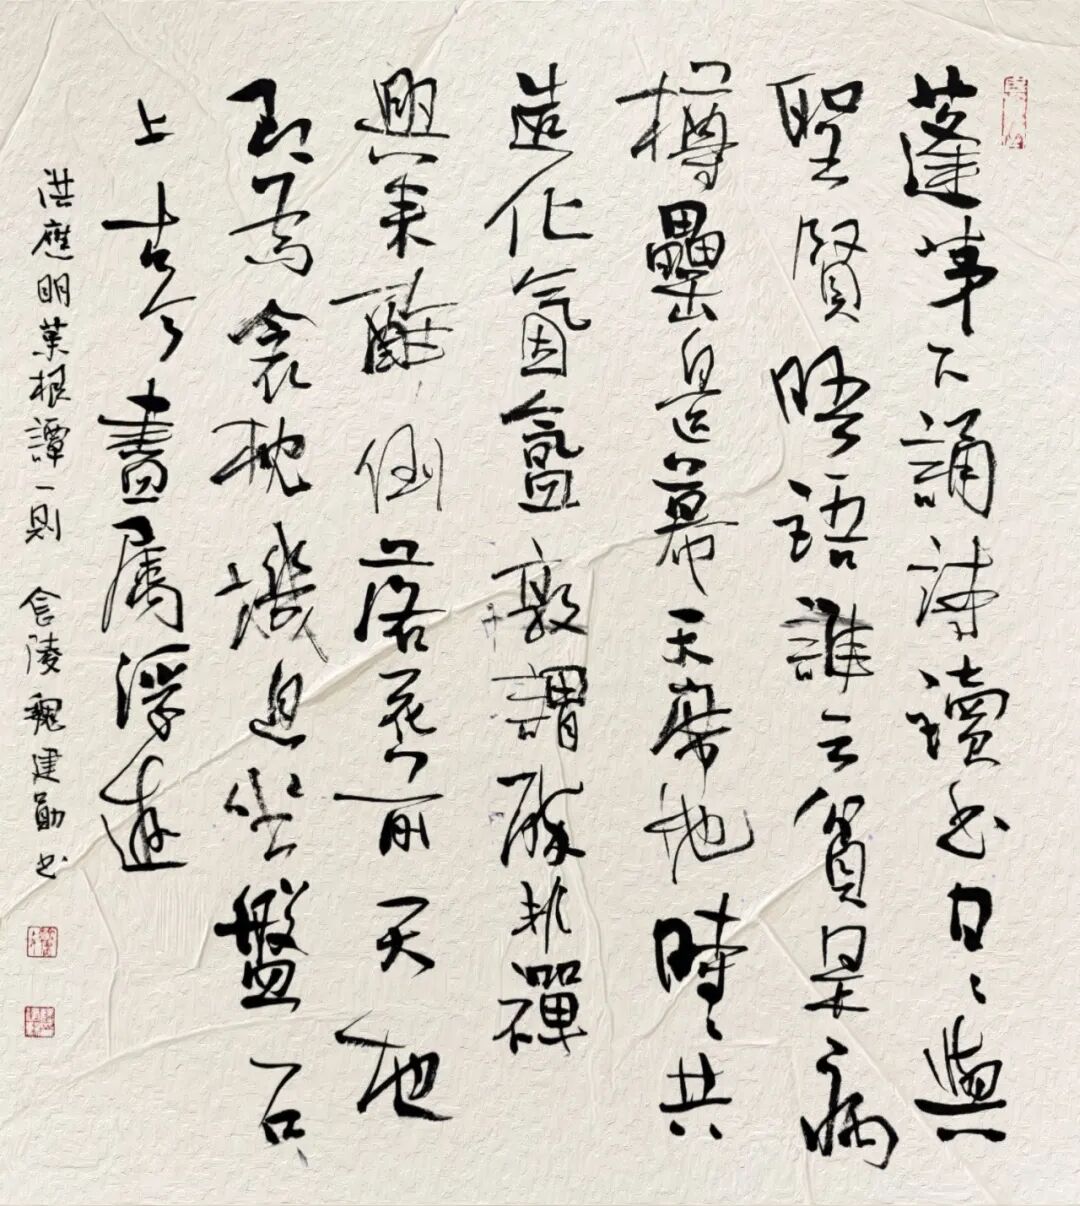 蓬茅下誦詩讀書日日與
聖賢晤語誰云貧是病
樽罍邊幕天席地時時共
造化氤氳孰謂醉非禪
興來醉倒落花前天地
即為衾枕機息坐盤石
上古今盡屬浮遊
洪應明菜根譚一則 金陵魏建勛書